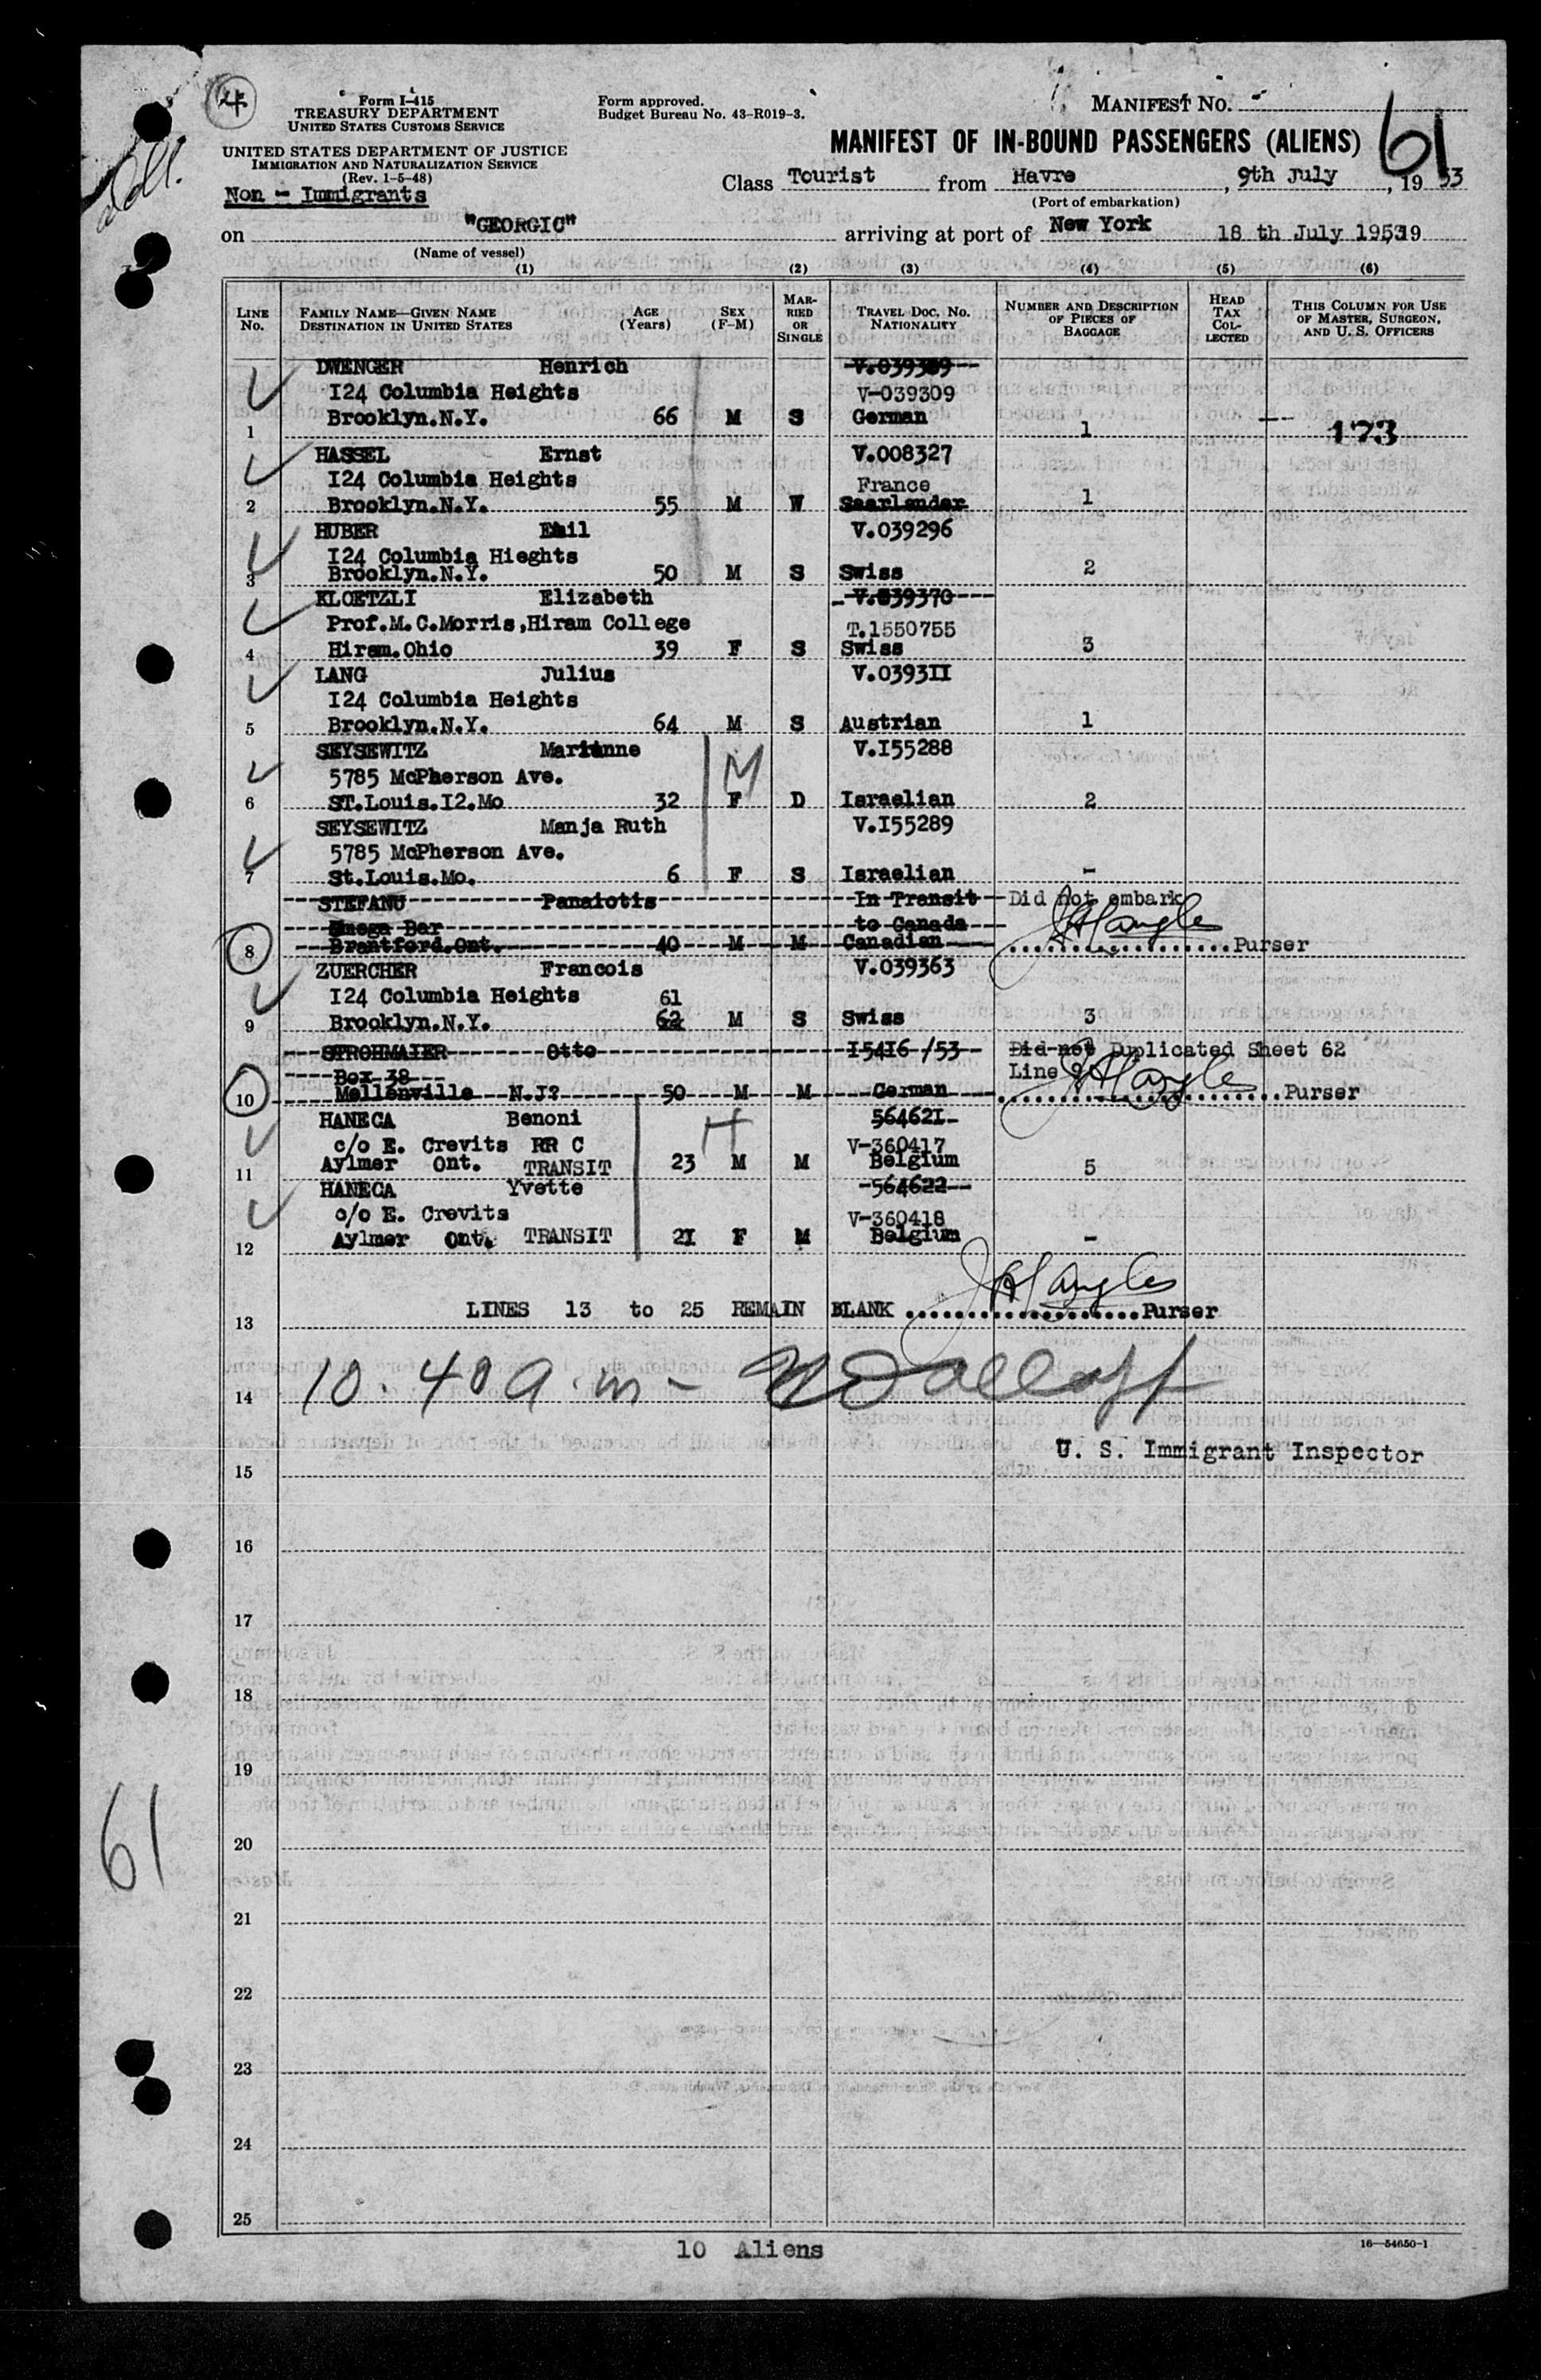 4
Form I-415
TREASURY DEPARTMENT
UNITED STATES CUSTOMS SERVICE
UNITED STATES DEPARTMENT OF JUSTICE
IMMIGRATION AND NATURALIZATION SERVICE
(Rev. 1-5-48)
Non - Immigrants
Form approved.
Budget Bureau No. 43-R019-3.
MANIFEST NO.
61
MANIFEST OF IN-BOUND PASSENGERS (ALIENS)
Class Tourist from Havre, 9th July, 19 53
(Port of embarkation)
on "GEORGIC" arriving at port of New York 18 th July 195319
(Name of vessel)
(1) (2) (3) (4) (5) (6)
LINE No. FAMILY NAME—GIVEN NAME DESTINATION IN UNITED STATES AGE (Years) SEX (F-M) MARRIED OR SINGLE TRAVEL DOC. NO. NATIONALITY NUMBER AND DESCRIPTION OF PIECES OF BAGGAGE HEAD TAX COLLECTED THIS COLUMN FOR USE OF MASTER, SURGEON, AND U. S. OFFICERS
DWENGER Henrich V.039309
I24 Columbia Heights V-039309
1 Brooklyn.N.Y. 66 M S German 1 173
HASSEL Ernst V.008327
I24 Columbia Heights France
2 Brooklyn.N.Y. 55 M W Saarlander 1
HUBER Emil V.039296
I24 Columbia Hieghts
3 Brooklyn.N.Y. 50 M S Swiss 2
KLOETZLI Elizabeth V.039370
Prof.M.C.Morris,Hiram College T.1550755
4 Hiram.Ohio 39 F S Swiss 3
LANG Julius V.0393II
I24 Columbia Heights
5 Brooklyn.N.Y. 64 M S Austrian 1
SEYSEWITZ Marianne V.I55288
5785 McPherson Ave. M
6 ST.Louis.I2.Mo 32 F D Israelian 2
SEYSEWITZ Manja Ruth V.I55289
5785 McPherson Ave.
7 St.Louis.Mo. 6 F S Israelian -
STEFANO Panaiotis In Transit Did not embark
Omega Bar to Canada
8 Brantford.Ont. 40 M M Canadian JH Langles Purser
ZUERCHER Francois V.039363
I24 Columbia Heights 61
9 Brooklyn.N.Y. 62 M S Swiss 3
STROHMAIER Otto I5416 /53 Did not Duplicated Sheet 62
Box 38 Line 9
10 Mellenville N.J? 50 M M German JH Langles Purser
HANECA Benoni 56462I
c/o E. Crevits RR C H V-360417
11 Aylmer Ont. TRANSIT 23 M M Belgium 5
HANECA Yvette 564622
c/o E. Crevits V-360418
12 Aylmer Ont. TRANSIT 2I F M Belgium -
13 LINES 13 to 25 REMAIN BLANK JH Langles Purser
14 10.40 a.m -
U. S. Immigrant Inspector
15
16
17
18
19
61
20
21
22
23
24
25
10 Aliens
16—54650-1